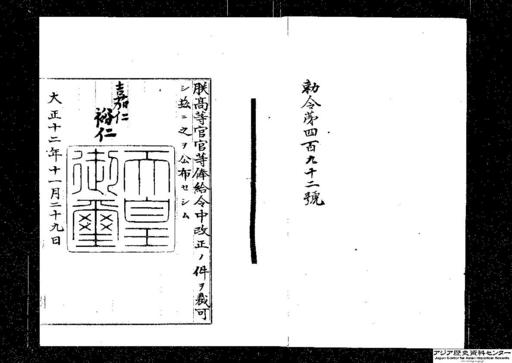 勅令第四百九十二號
朕高等官官等俸給令中改正ノ件ヲ裁可
シ茲ニ之ヲ公布セシム
嘉仁
裕仁
天皇
御璽
大正十二年十一月二十九日
アジア歴史資料センター
Japan Center for Asian Historical Records